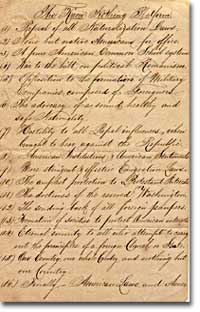 The Know Nothing Platform
(1) Repeal of all Naturalization Laws.
(2) None but native Americans for office.
(3) A pure American Common School system.
(4) War to the hilt, on political Romanism.
(5) Opposition to the formation of Military
Companies, composed of Foreigners.
(6) The advocacy of a sound, healthy and
safe Nationality.
(7) Hostility to all Papal influences, when
brought to bear against the Republic.
(8) American Institutions & American Sentiments.
(9) More stringent & effective Emigration Laws.
(10) The amplest protection to Protestant Interests.
(11) The doctrines of the revered Washington.
(12) The sending back of all foreign paupers.
(13) Formation of societies to protect American interests.
(14) Eternal enmity to all who attempt to carry
out the principles of a foreign Church or State.
(15) Our Country, our whole Country, and nothing but
our Country.
(16) Finally,- American Laws, and